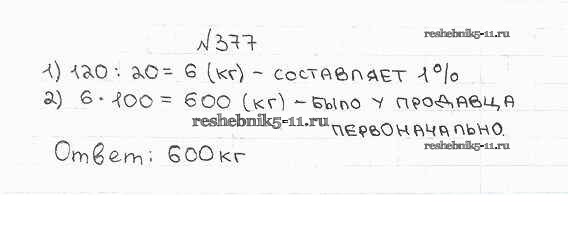 №377
reshebnik5-11.ru
1) 120 : 20 = 6 (кг) - составляет 1%
2) 6 · 100 = 600 (кг) - было у продавца
reshebnik5-11.ru
первоначально.
reshebnik5-11.ru
Ответ: 600 кг